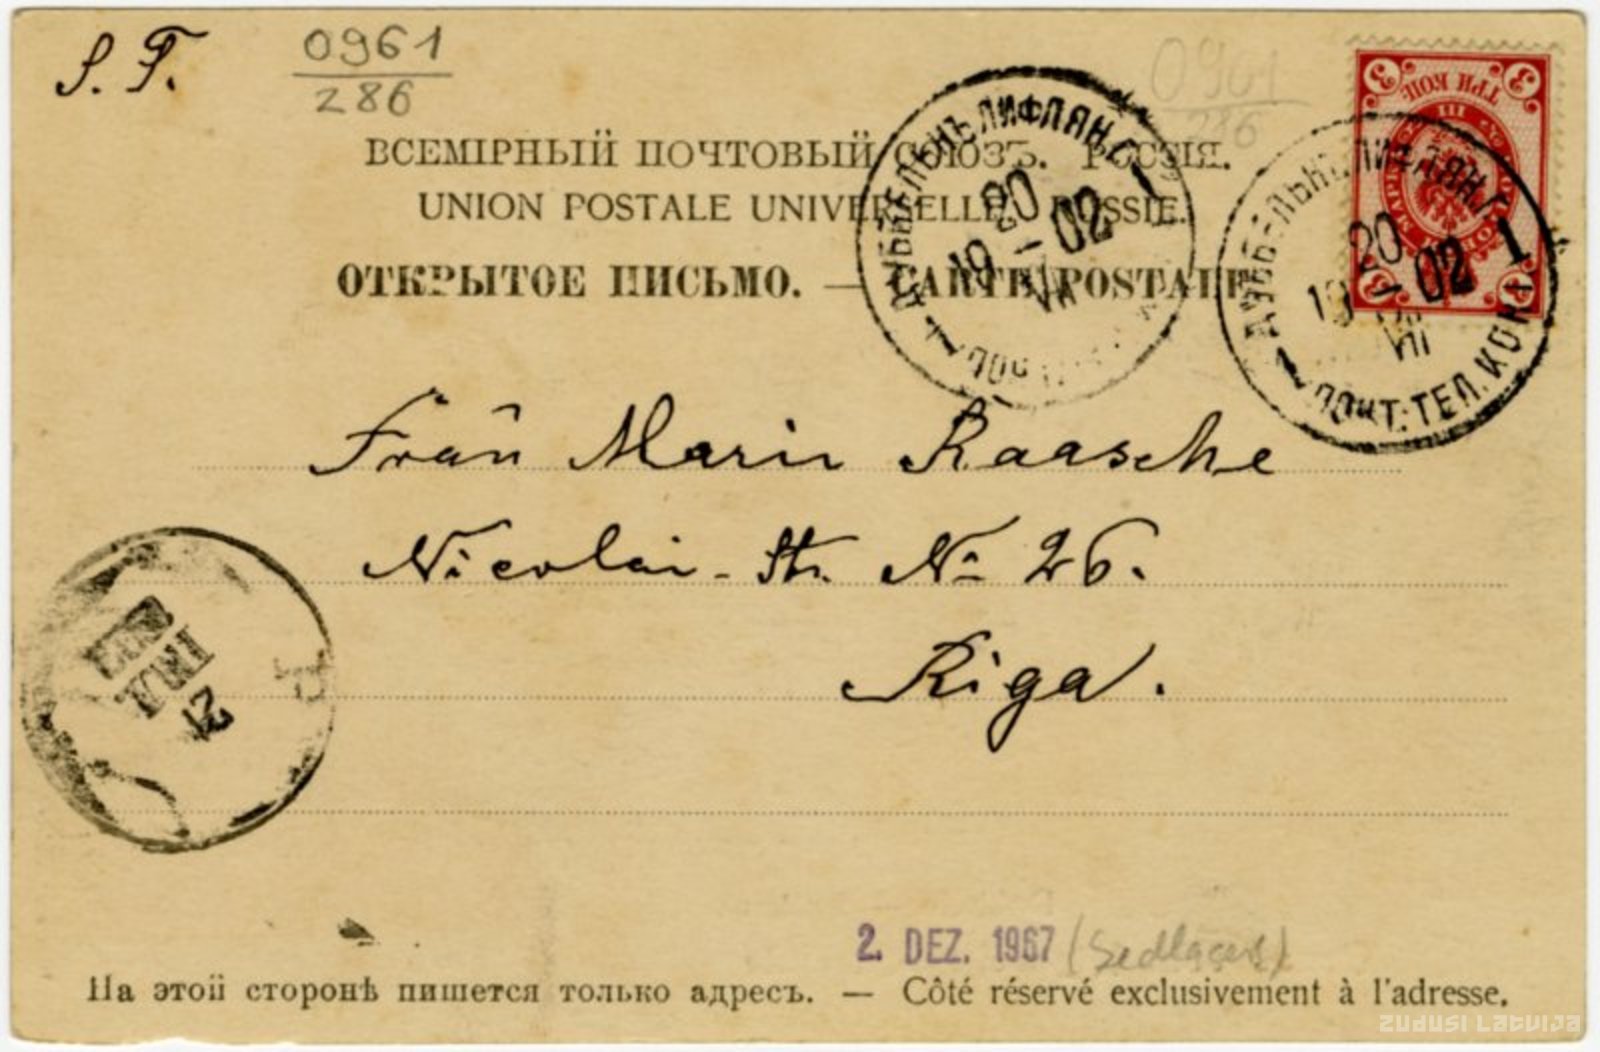 S. T.
0961
286
0961
286
ВСЕМІРНЫЙ ПОЧТОВЫЙ СОЮЗЪ. РОССІЯ.
UNION POSTALE UNIVERSELLE. RUSSIE.
ОТКРЫТОЕ ПИСЬМО. — CARTE POSTALE
3 ТРИ КОП. 3
ДУББЕЛЬНЪ ЛИФЛЯН. Г.
20
19 — 02 1
VII
ДУББЕЛЬНЪ ЛИФЛЯН. Г.
20
19 — 02 1
VII
1 ПОЧТ. ТЕЛ. КОН.
Frau Marie Raasche
Nicolai-Str. № 26.
Riga.
21
2. DEZ. 1967
На этой сторонѣ пишется только адресъ. — Côté réservé exclusivement à l'adresse.
ZUDUSI LATVIJA